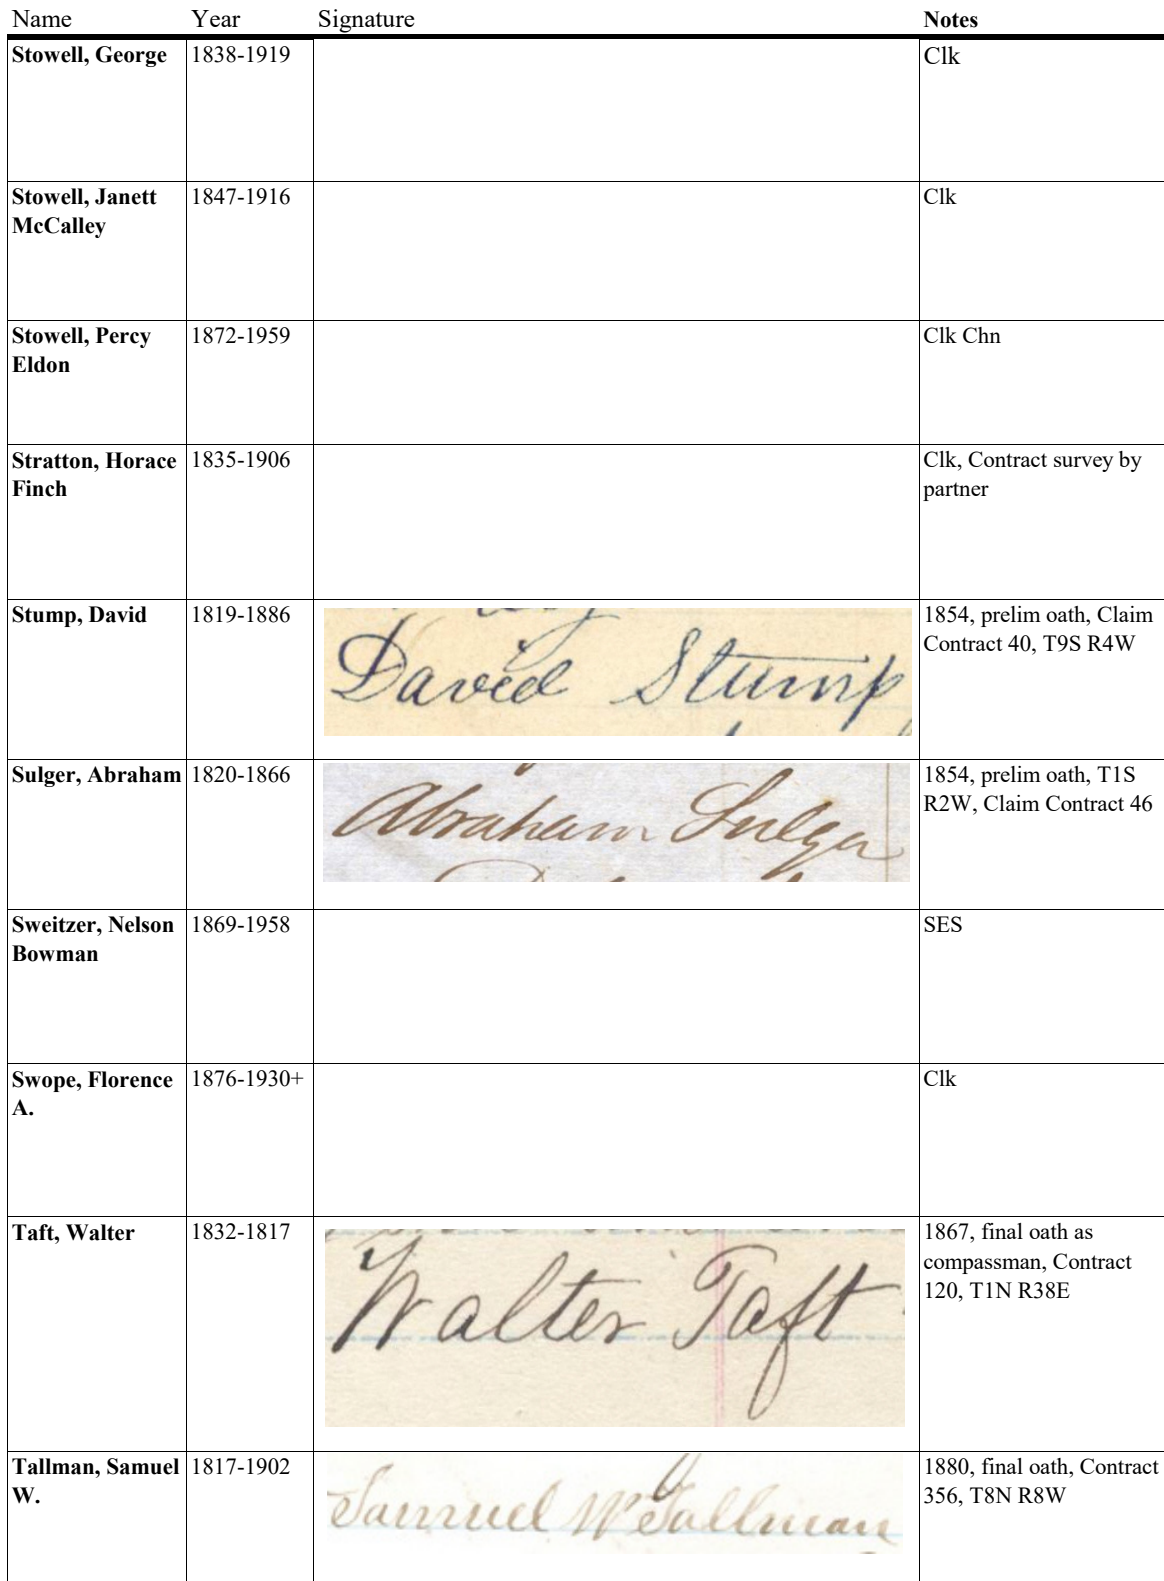 Name Year Signature Notes
Stowell, George 1838-1919 Clk
Stowell, Janett 1847-1916 Clk
McCalley
Stowell, Percy 1872-1959 Clk Chn
Eldon
Stratton, Horace 1835-1906 Clk, Contract survey by
Finch partner
Stump, David 1819-1886 David Stump 1854, prelim oath, Claim
Contract 40, T9S R4W
Sulger, Abraham 1820-1866 Abraham Sulger 1854, prelim oath, T1S
R2W, Claim Contract 46
Sweitzer, Nelson 1869-1958 SES
Bowman
Swope, Florence 1876-1930+ Clk
A.
Taft, Walter 1832-1817 Walter Taft 1867, final oath as
compassman, Contract
120, T1N R38E
Tallman, Samuel 1817-1902 Samuel W Tallman 1880, final oath, Contract
W. 356, T8N R8W